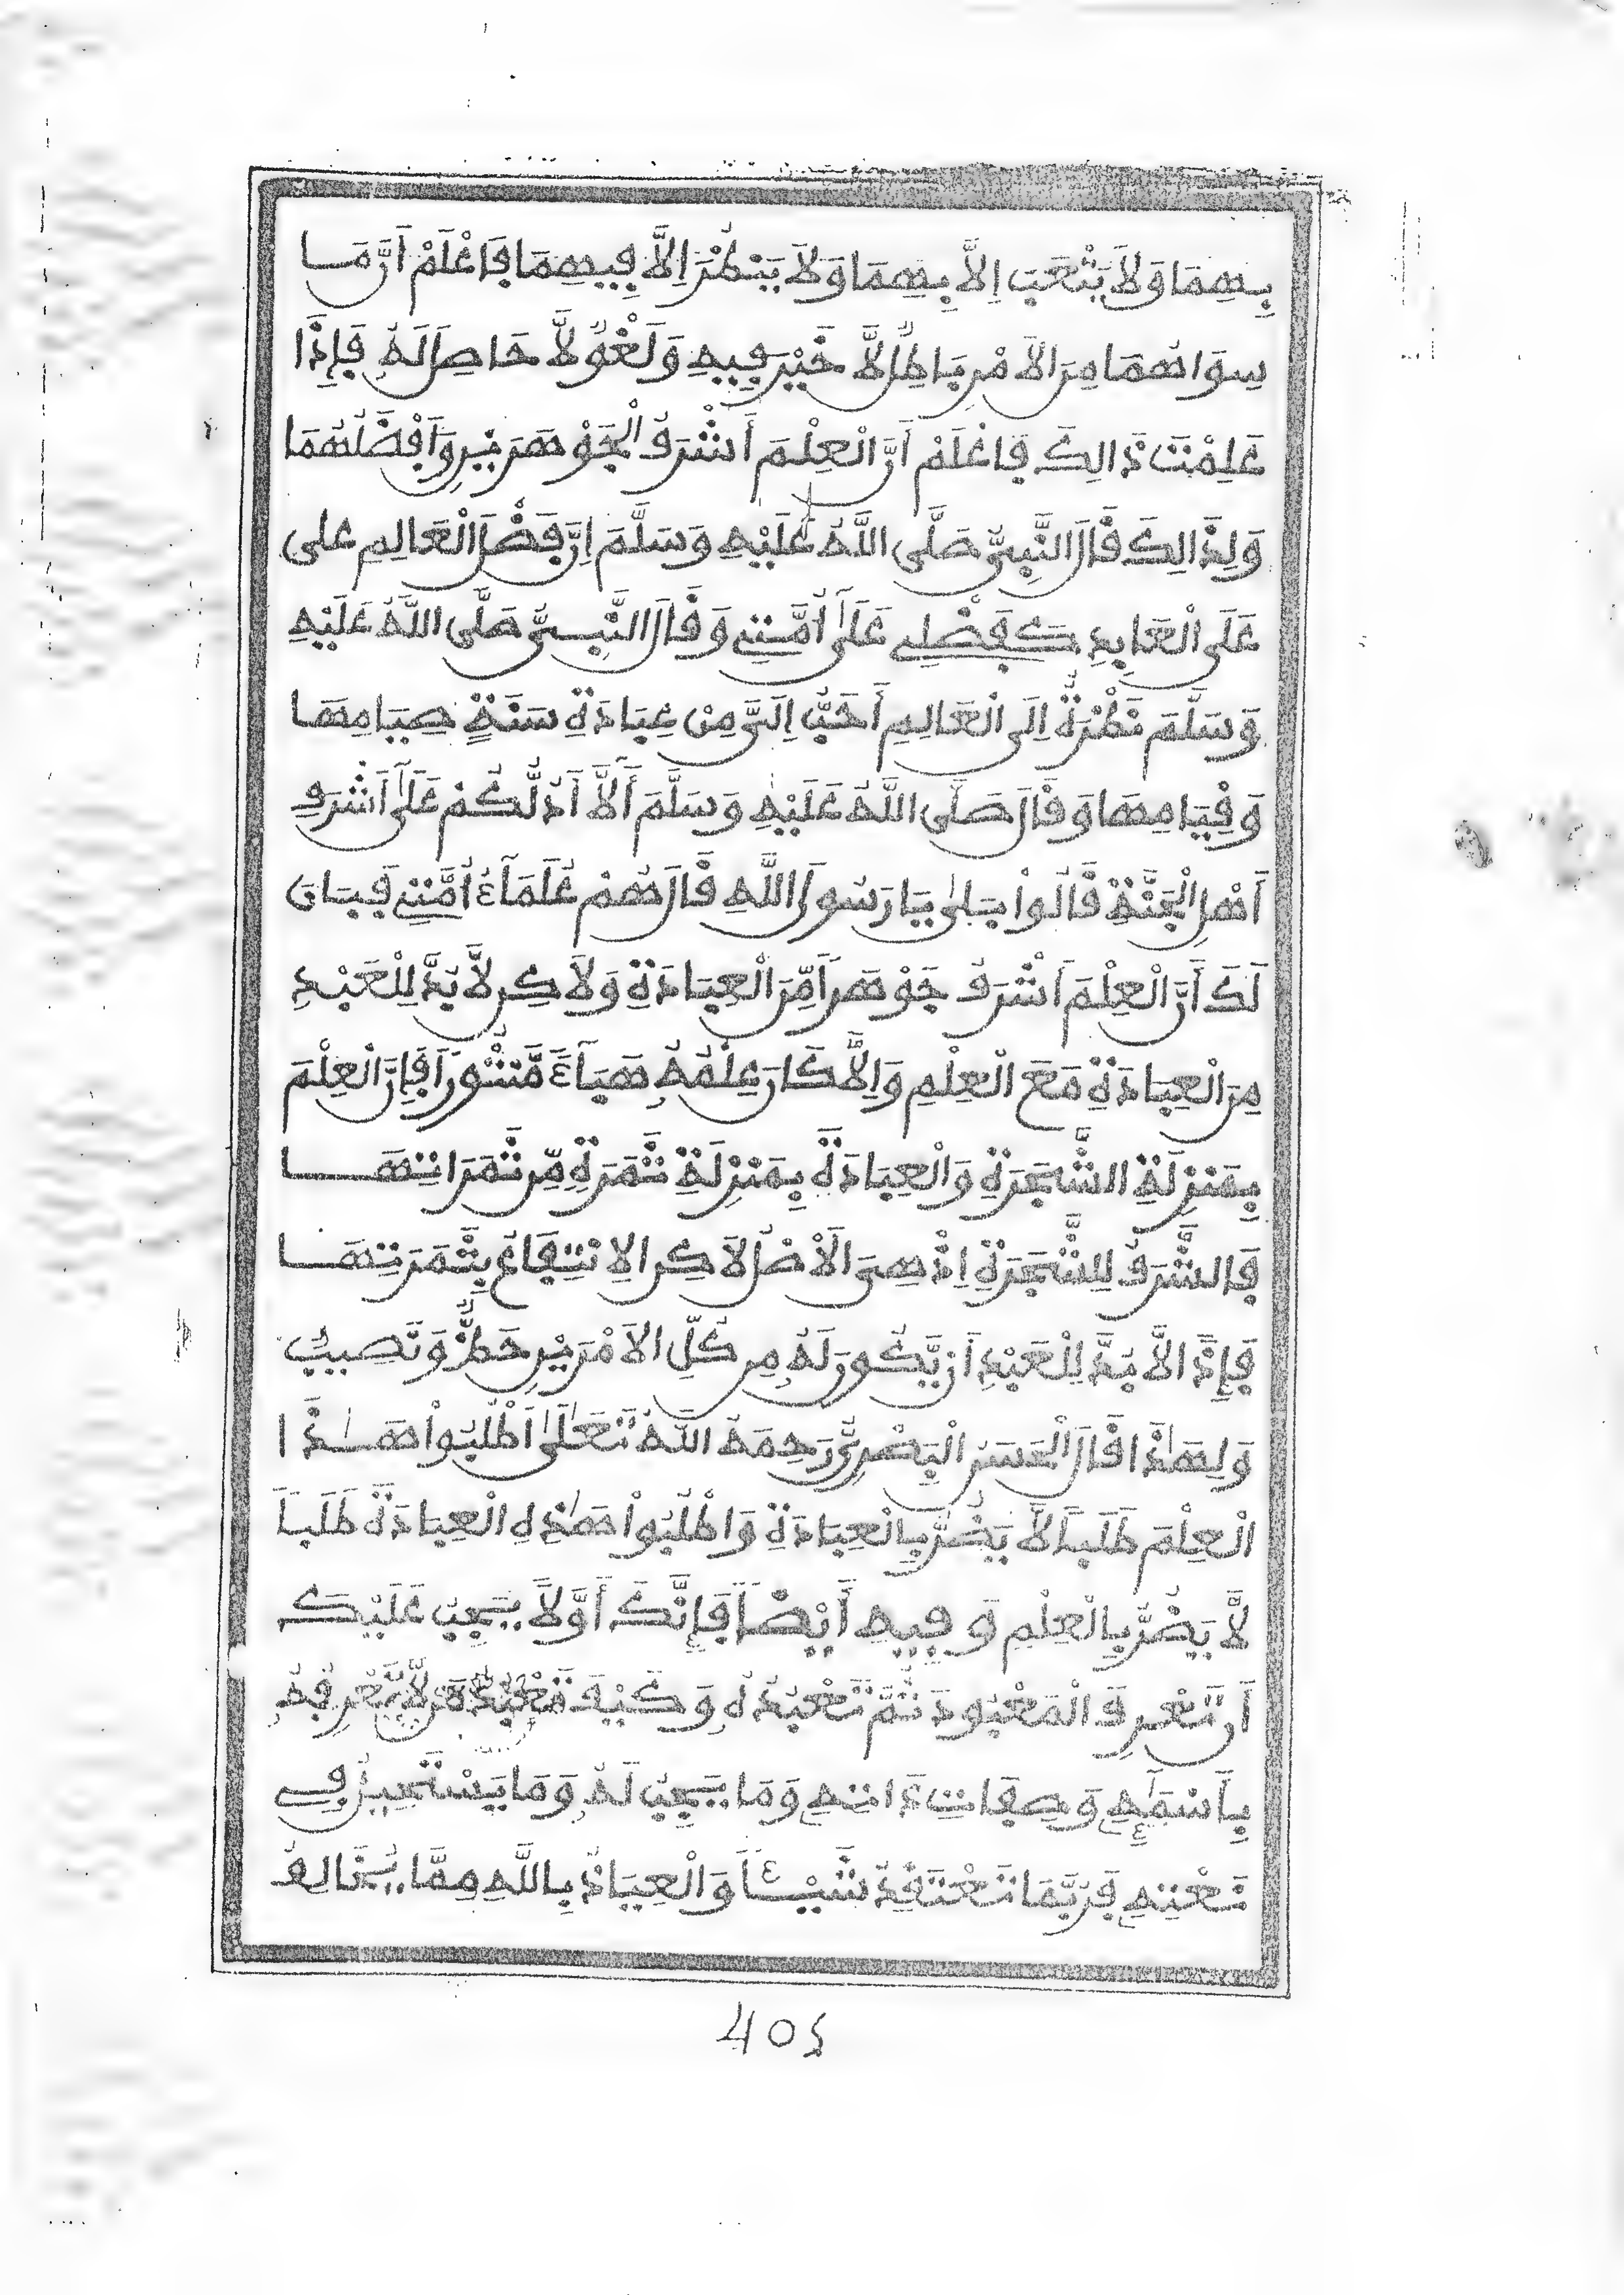 بِهِمَا وَلَا يَتْعَبَ إِلَّا بِهِمَا وَلَا يَنظُرَ إِلَّا فِيهِمَا فَاعْلَمْ أَنَّ مَا
سِوَاهُمَا مِنَ الْأُمُورِ بَاطِلٌ لَّا خَيْرَ فِيهِ وَلَغْوٌ لَّا حَاصِلَ لَهُ فَإِذَا
عَلِمْتَ ذَالِكَ فَاعْلَمْ أَنَّ الْعِلْمَ أَشْرَفُ الْجَوْهَرَيْنِ وَأَفْضَلُهُمَا
وَلِذَالِكَ قَالَ النَّبِيُّ صَلَّى اللَّهُ عَلَيْهِ وَسَلَّمَ إِنَّ فَضْلَ الْعَالِمِ على
عَلَى الْعَابِدِ كَفَضْلِي عَلَى أُمَّتِي وَقَالَ النَّبِيُّ صَلَّى اللَّهُ عَلَيْهِ
وَسَلَّمَ نَظْرَةٌ إِلَى الْعَالِمِ أَحَبُّ إِلَيَّ مِنْ عِبَادَةِ سَنَةٍ صِيَامِهَا
وَقِيَامِهَا وَقَالَ صَلَّى اللَّهُ عَلَيْهِ وَسَلَّمَ أَلَا أَدُلُّكُمْ عَلَى أَشْرَفِ
أَهْلِ الْجَنَّةِ قَالُواْ بَلَى يَا رَسُولَ اللَّهِ قَالَ هُمْ عُلَمَاءُ أُمَّتِي فَبَانَ
لَكَ أَنَّ الْعِلْمَ أَشْرَفُ جَوْهَراً مِّنَ الْعِبَادَةِ وَلَاكِن لَّا بُدَّ لِلْعَبْدِ
مِنَ الْعِبَادَةِ مَعَ الْعِلْمِ وَإِلَّا كَانَ عِلْمُهُ هَبَاءً مَّنثُوراً فَإِنَّ الْعِلْمَ
بِمَنزِلَةِ الشَّجَرَةِ وَالْعِبَادَةَ بِمَنزِلَةِ ثَمَرَةٍ مِّن ثَمَرَاتِهَا
فَالشَّرَفُ لِلشَّجَرَةِ إِذْ هِيَ الْأَصْلُ لَاكِنِ الِانْتِفَاعُ بِثَمَرَتِهَا
فَإِذاً لَّا بُدَّ لِلْعَبْدِ أَن يَّكُونَ لَهُ مِن كُلِّ الْأَمْرَيْنِ حَظٌّ وَنَصِيبٌ
وَلِهَذَا قَالَ الْحَسَنُ الْبَصْرِيُّ رَحِمَهُ اللَّهُ تَعَلَى اُطْلُبُواْ هَـذَا
الْعِلْمَ طَلَباً لَّا يَضُرُّ بِالْعِبَادَةِ وَاطْلُبُواْ هَذِهِ الْعِبَادَةَ طَلَباً
لَّا يَضُرُّ بِالْعِلْمِ وَفِيهِ أَيْضاً فَإِنَّكَ أَوَّلاً يَجِبُ عَلَيْكَ
أَن تَعْرِفَ الْمَعْبُودَ ثُمَّ تَعْبُدُهُ وَكَيْفَ تَعْبُدُ مَن لَّا تَعْرِفُهُ
بِأَسْمَائِهِ وَصِفَاتِ ذَاتِهِ وَمَا يَجِبُ لَهُ وَمَا يَسْتَحِيلُ فِي
نَعْتِهِ فَرُبَّمَا تَعْتَقِدُ شَيْـئاً وَالْعِيَاذُ بِاللَّهِ مِمَّا يُخَالِفُ
405